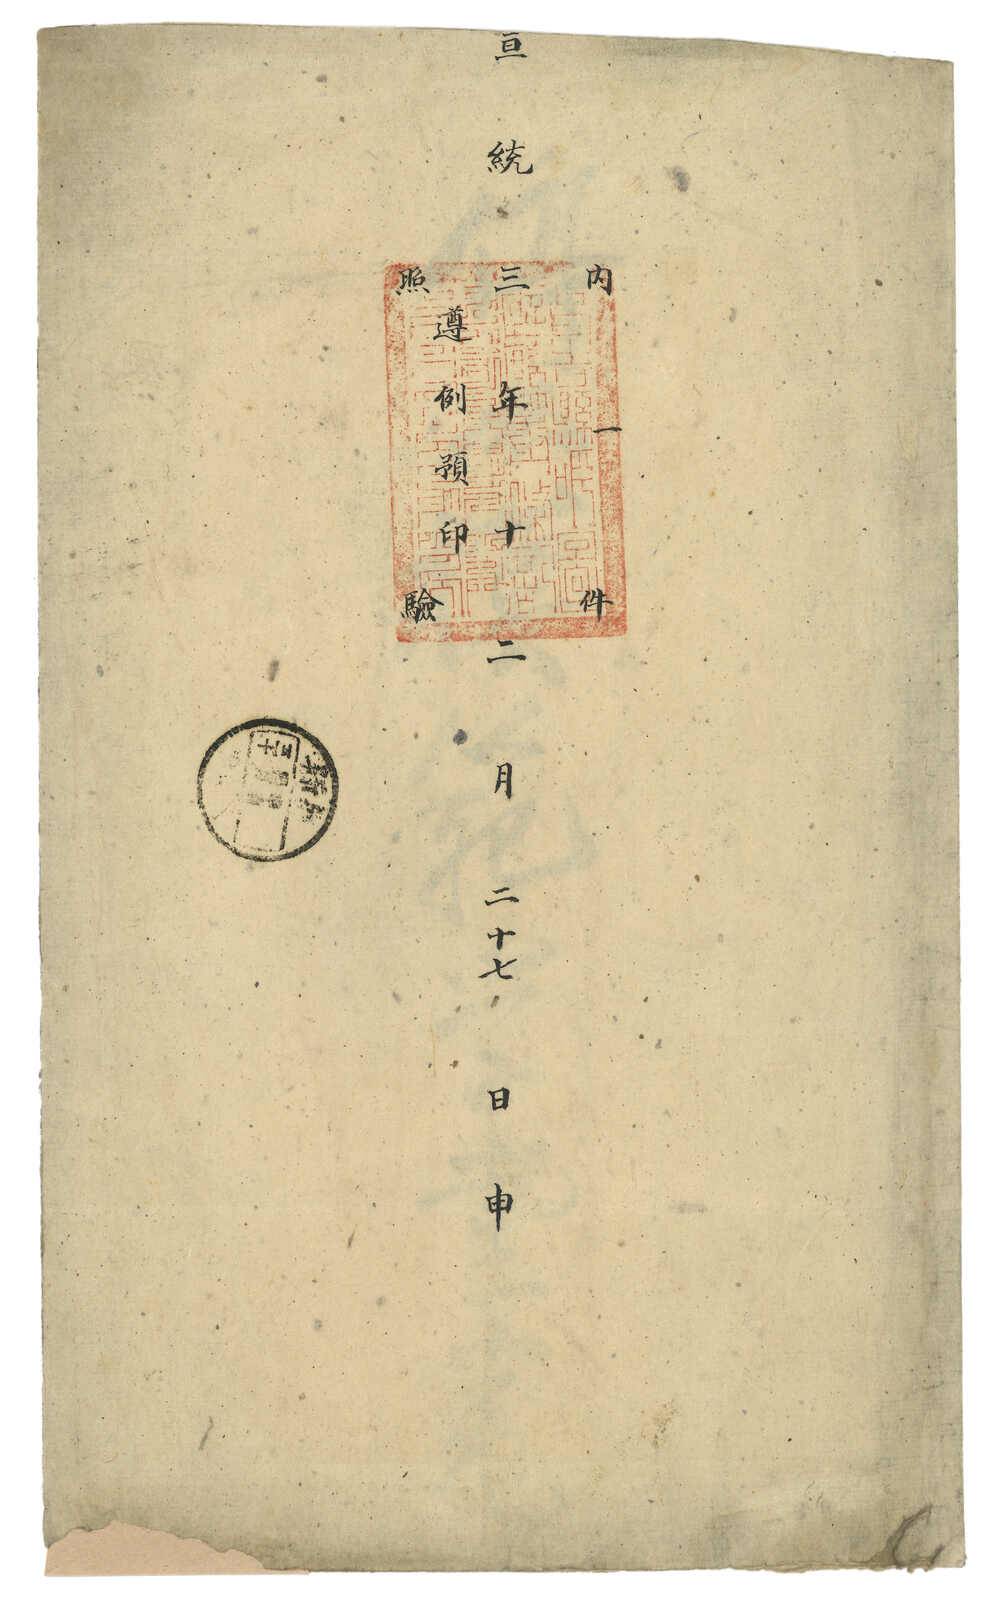 內一件
宣統三年十二月二十七日申
遵例預印
照驗